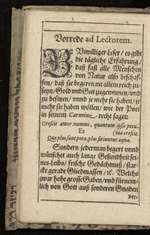 Vorrede ad Lectorem.
BEnwilliger Leser / es gibt
die tägliche Erfahrung /
daß fast alle Menschen
von Natur also beschaf-
fen / daß sie begeren an allem reich zu
seyn / Gold und Gut zugewinnen / und
zu besitzen / unnd je mehr sie haben / je
mehr sie haben wöllen / wie der Poet
in seinem Carmine, recht saget:
Crescit amor nummi, quantum ipsa pecunia
crescit.
Et
Quo plus sunt potæ, plus sitiuntur aquæ.
Sondern jederman begert unnd
wünschet auch lange Gesundheit
Leibs / frische Gedächtnuß / star-
cke gerade Gliedmassen / &c. Welches
zwar hohe grosse Gaben / und
lich von Gott auß sonderen Gnaden